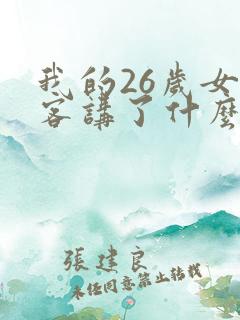 我的26歲女
客講了什麼
張建良
未任同意禁止转载